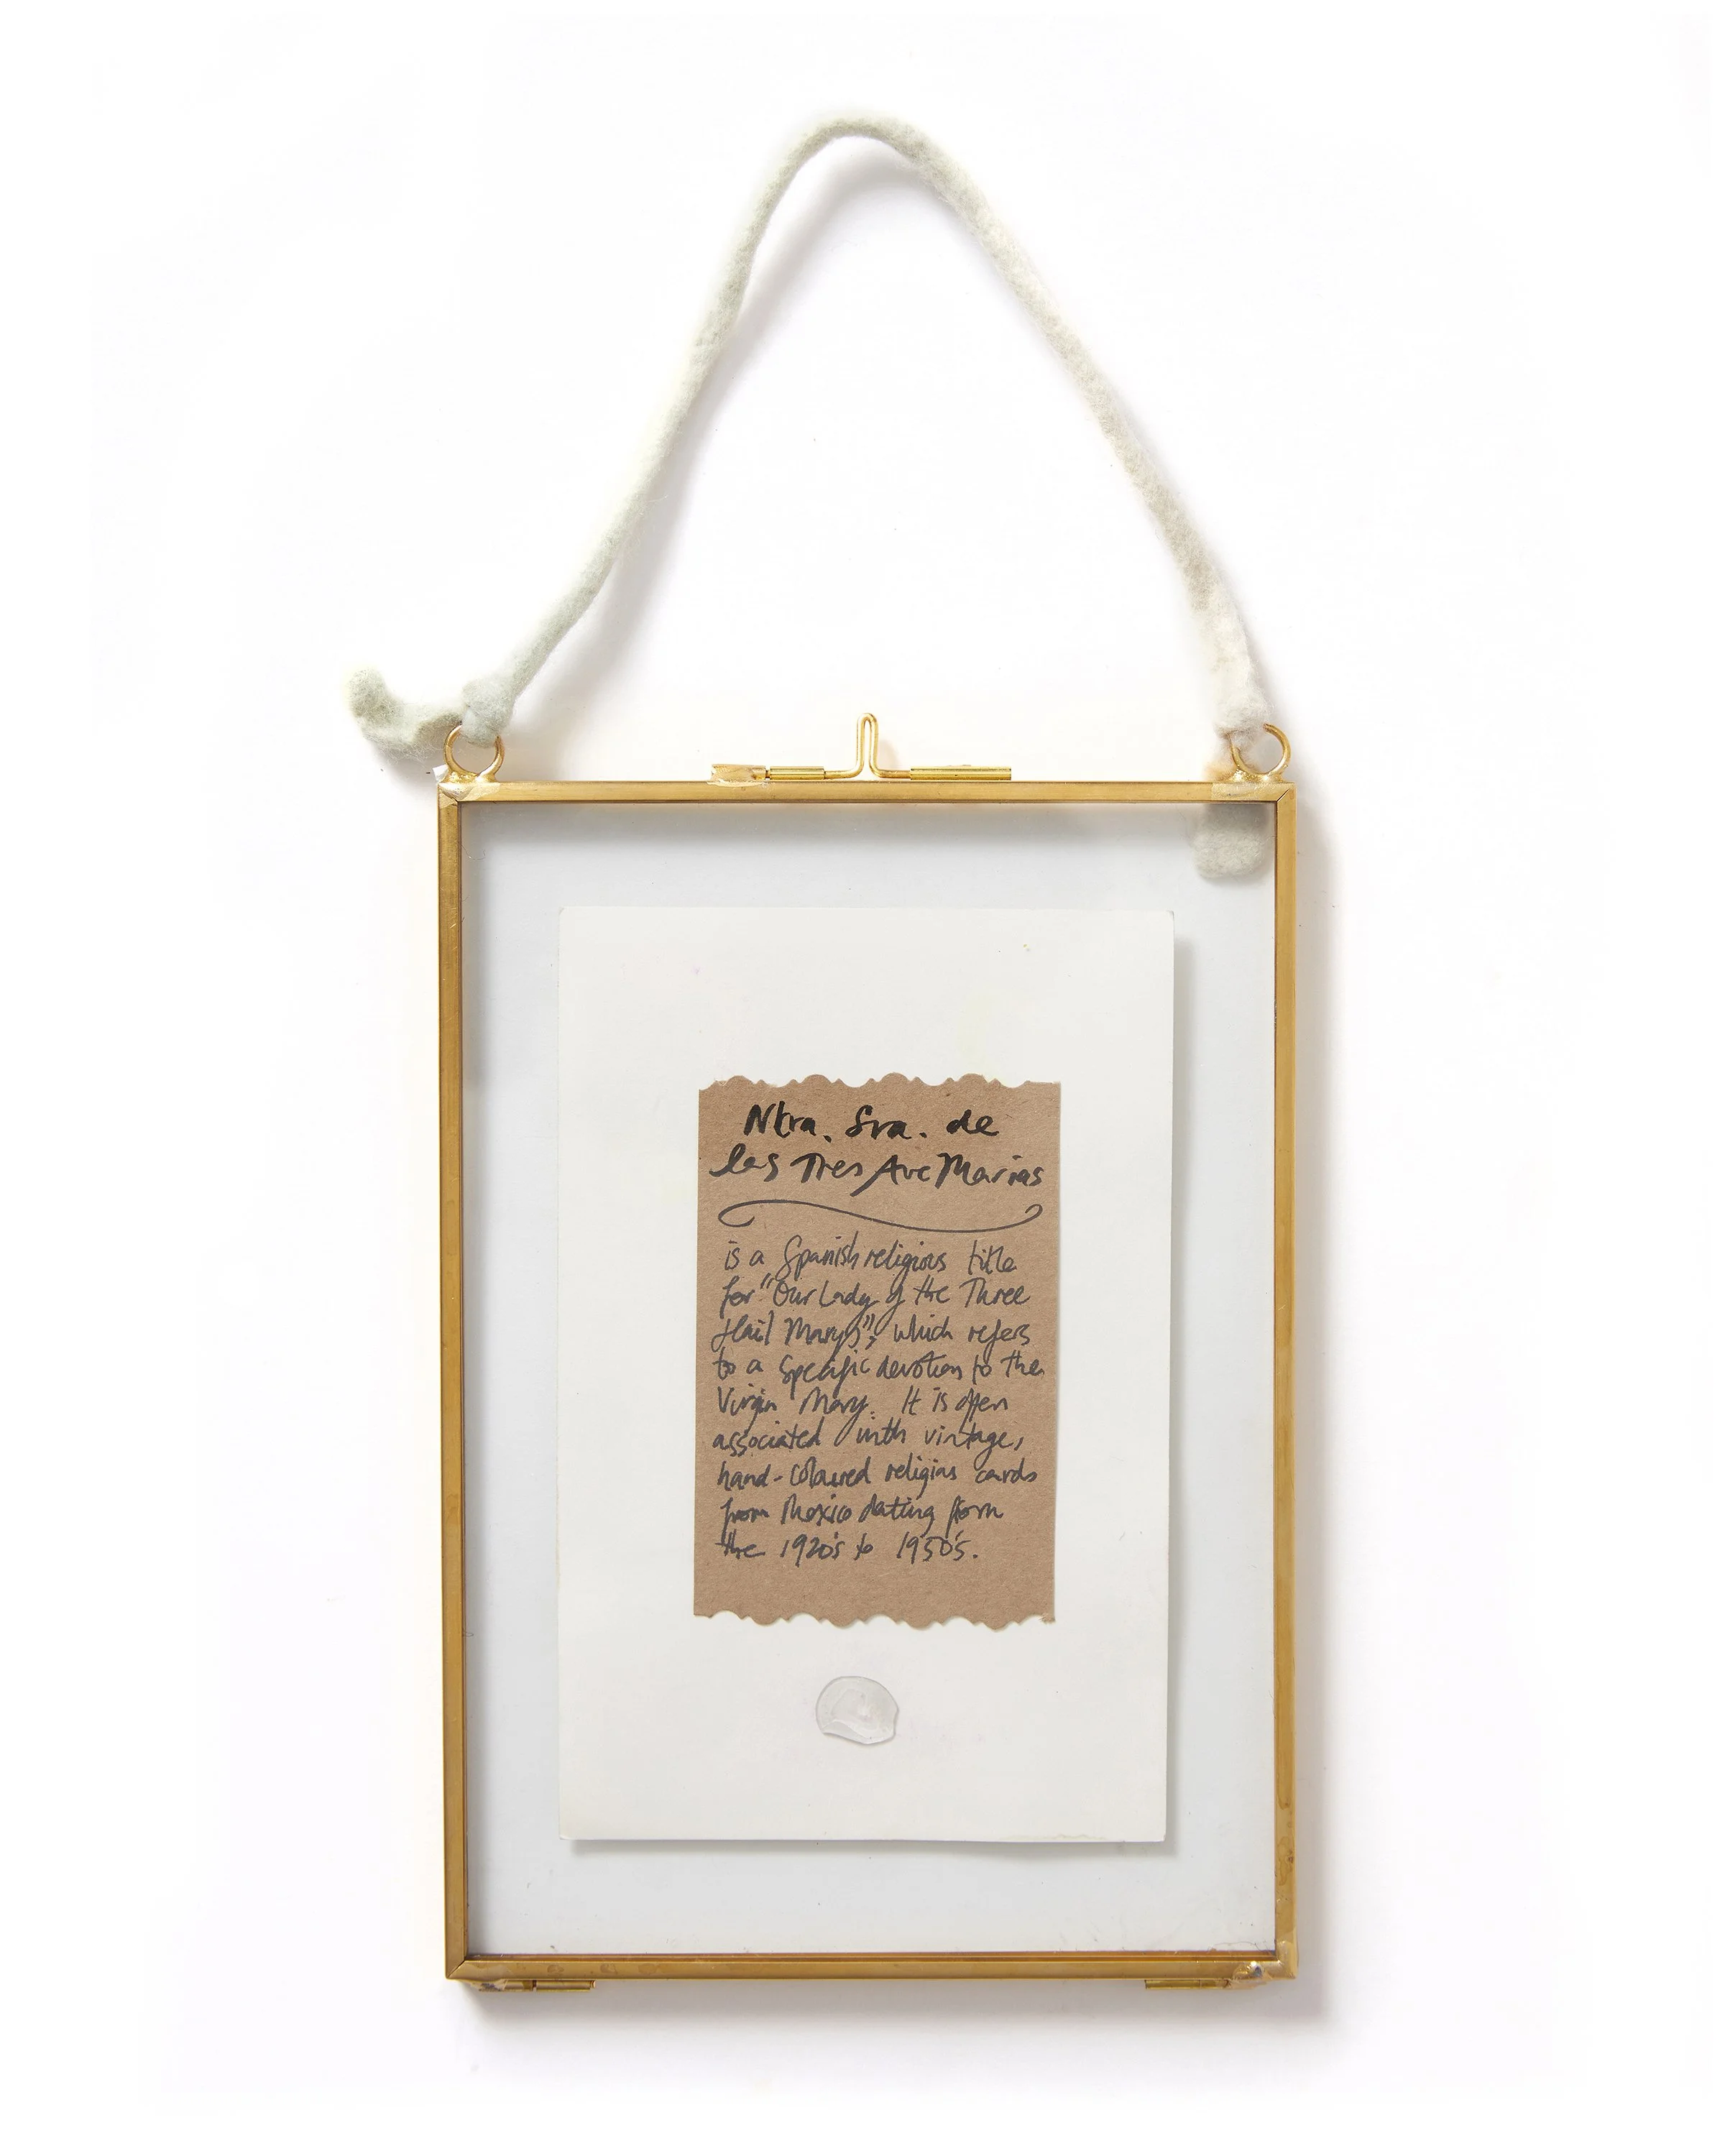 Ntra. Sra. de
las Tres Ave Marias
is a Spanish religious title
for "Our Lady of the Three
Hail Marys", which refers
to a specific devotion to the
Virgin Mary. It is often
associated with vintage,
hand-coloured religious cards
from Mexico dating from
the 1920's to 1950's.